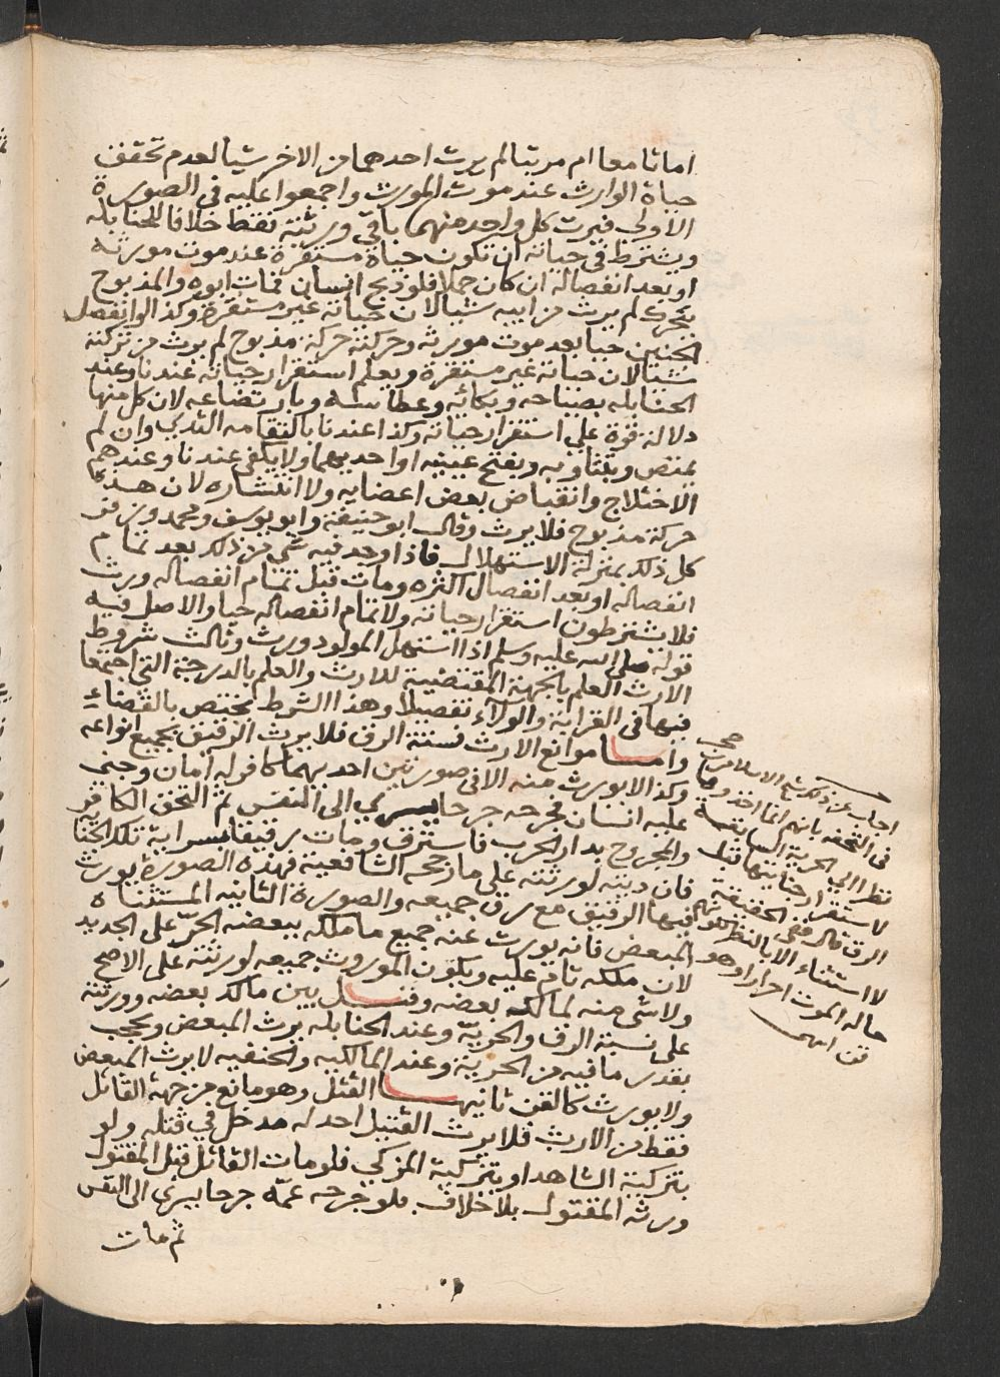 اماتا معا ام مرتبا لم يرث احدهما من الاخر شيا لعدم تحقق
حياة الوارث عند موت المورث واجمعوا عليه في الصورة
الاولى فيرث كل واحد منهما باقي ورثته فقط خلافا للحنابله
ويشترط في حياته ان تكون حياة مستقرة عند موت مورثه
او بعد انفصاله ان كان حملا فلو ذبح انسان فمات ابوه والمذبوح
يتحرك لم يرث من ابيه شيا لان حياته غير مستقرة وكذا لو انفصل
الجنين حيا بعد موت مورثه وحركته حركة مذبوح لم يرث من تركته
شيا لان حياته غير مستقرة ويعلم استقرار حياته عندنا وعند
الحنابله بصياحه وبكائه وعطاسه وبارتضاعه لان كل منها
دلالة قوة على استقرار حياته وكذا عندنا بالتقامه الثدي وان لم
يمتص وبتثاوبه وبفتح عينيه او احديهما ولا يكفي عندنا وعندهم
الاختلاج وانقباض بعض اعضايه ولا انتشاره لان هذه
حركة مذبوح فلا يرث وقال ابو حنيفة وابو يوسف ومحمد وزفر
كل ذلك بمنزلة الاستهلال فاذا وجد فيه شي من ذلك بعد تمام
انفصاله او بعد انفصال اكثره ومات قبل تمام انفصاله ورث
فلا يشترطون استقرار حياته ولا تمام انفصاله حيا والاصل فيه
قوله صلى الله عليه وسلم اذا استهل المولود ورث وثالث شروط
الارث العلم بالجهة المقتضية للارث والعلم بالدرجة التي اجتمعا
فيها في القرابة والولاء تفصيلا وهذا الشرط يختص بالقضاء
واما موانع الارث فستة الرق فلا يرث الرقيق بجميع انواعه
وكذا لا يورث منه الا في صورتين احديهما كافر له امان وجني
عليه انسان فجرحه جرحا يسري الى النفس ثم التحق الكافر
والمجروح بدار الحرب فاسترق ومات رقيقا بسراية تلك الجناية
فان ديته لورثته على ما رجحه الشافعية فهذه الصورة يورث
فيها الرقيق مع رق جميعه والصورة الثانيه المستثناه
المبعض فانه يورث عنه جميع ما ملكه ببعضه الحر على الجديد
لان ملكه تام عليه ويكون الموروث جميعه لورثته على الاصح
ولا شي منه لمالك بعضه وقيل بين مالك بعضه وورثته
على نسبة الرق والحرية وعند الحنابله يرث المبعض ويحجب
بقدر ما فيه من الحرية وعند المالكيه والحنفيه لا يرث المبعض
ولا يورث كالقن ثانيها القتل وهو مانع من جهة القاتل
فقط من الارث فلا يرث القتيل احد له مدخل في قتله ولو
بتزكية الشاهد او بتزكية المزكي فلو مات القاتل قبل المقتول
ورثه المقتول بلا خلاف فلو جرحه عمه جرحا يسري الى النفس
ثم مات
صح
اجاب عن ذلك شيخ الاسلام
في التحفه بانهم انما اخذوها
نظرا الى الحرية السابقة
لاستقرار جنايتها قبل
الرق قال ففي الحقيقة
لا استثناء الا بالنظر لكونهم
حالة الموت احرارا وهو
قن انتهى